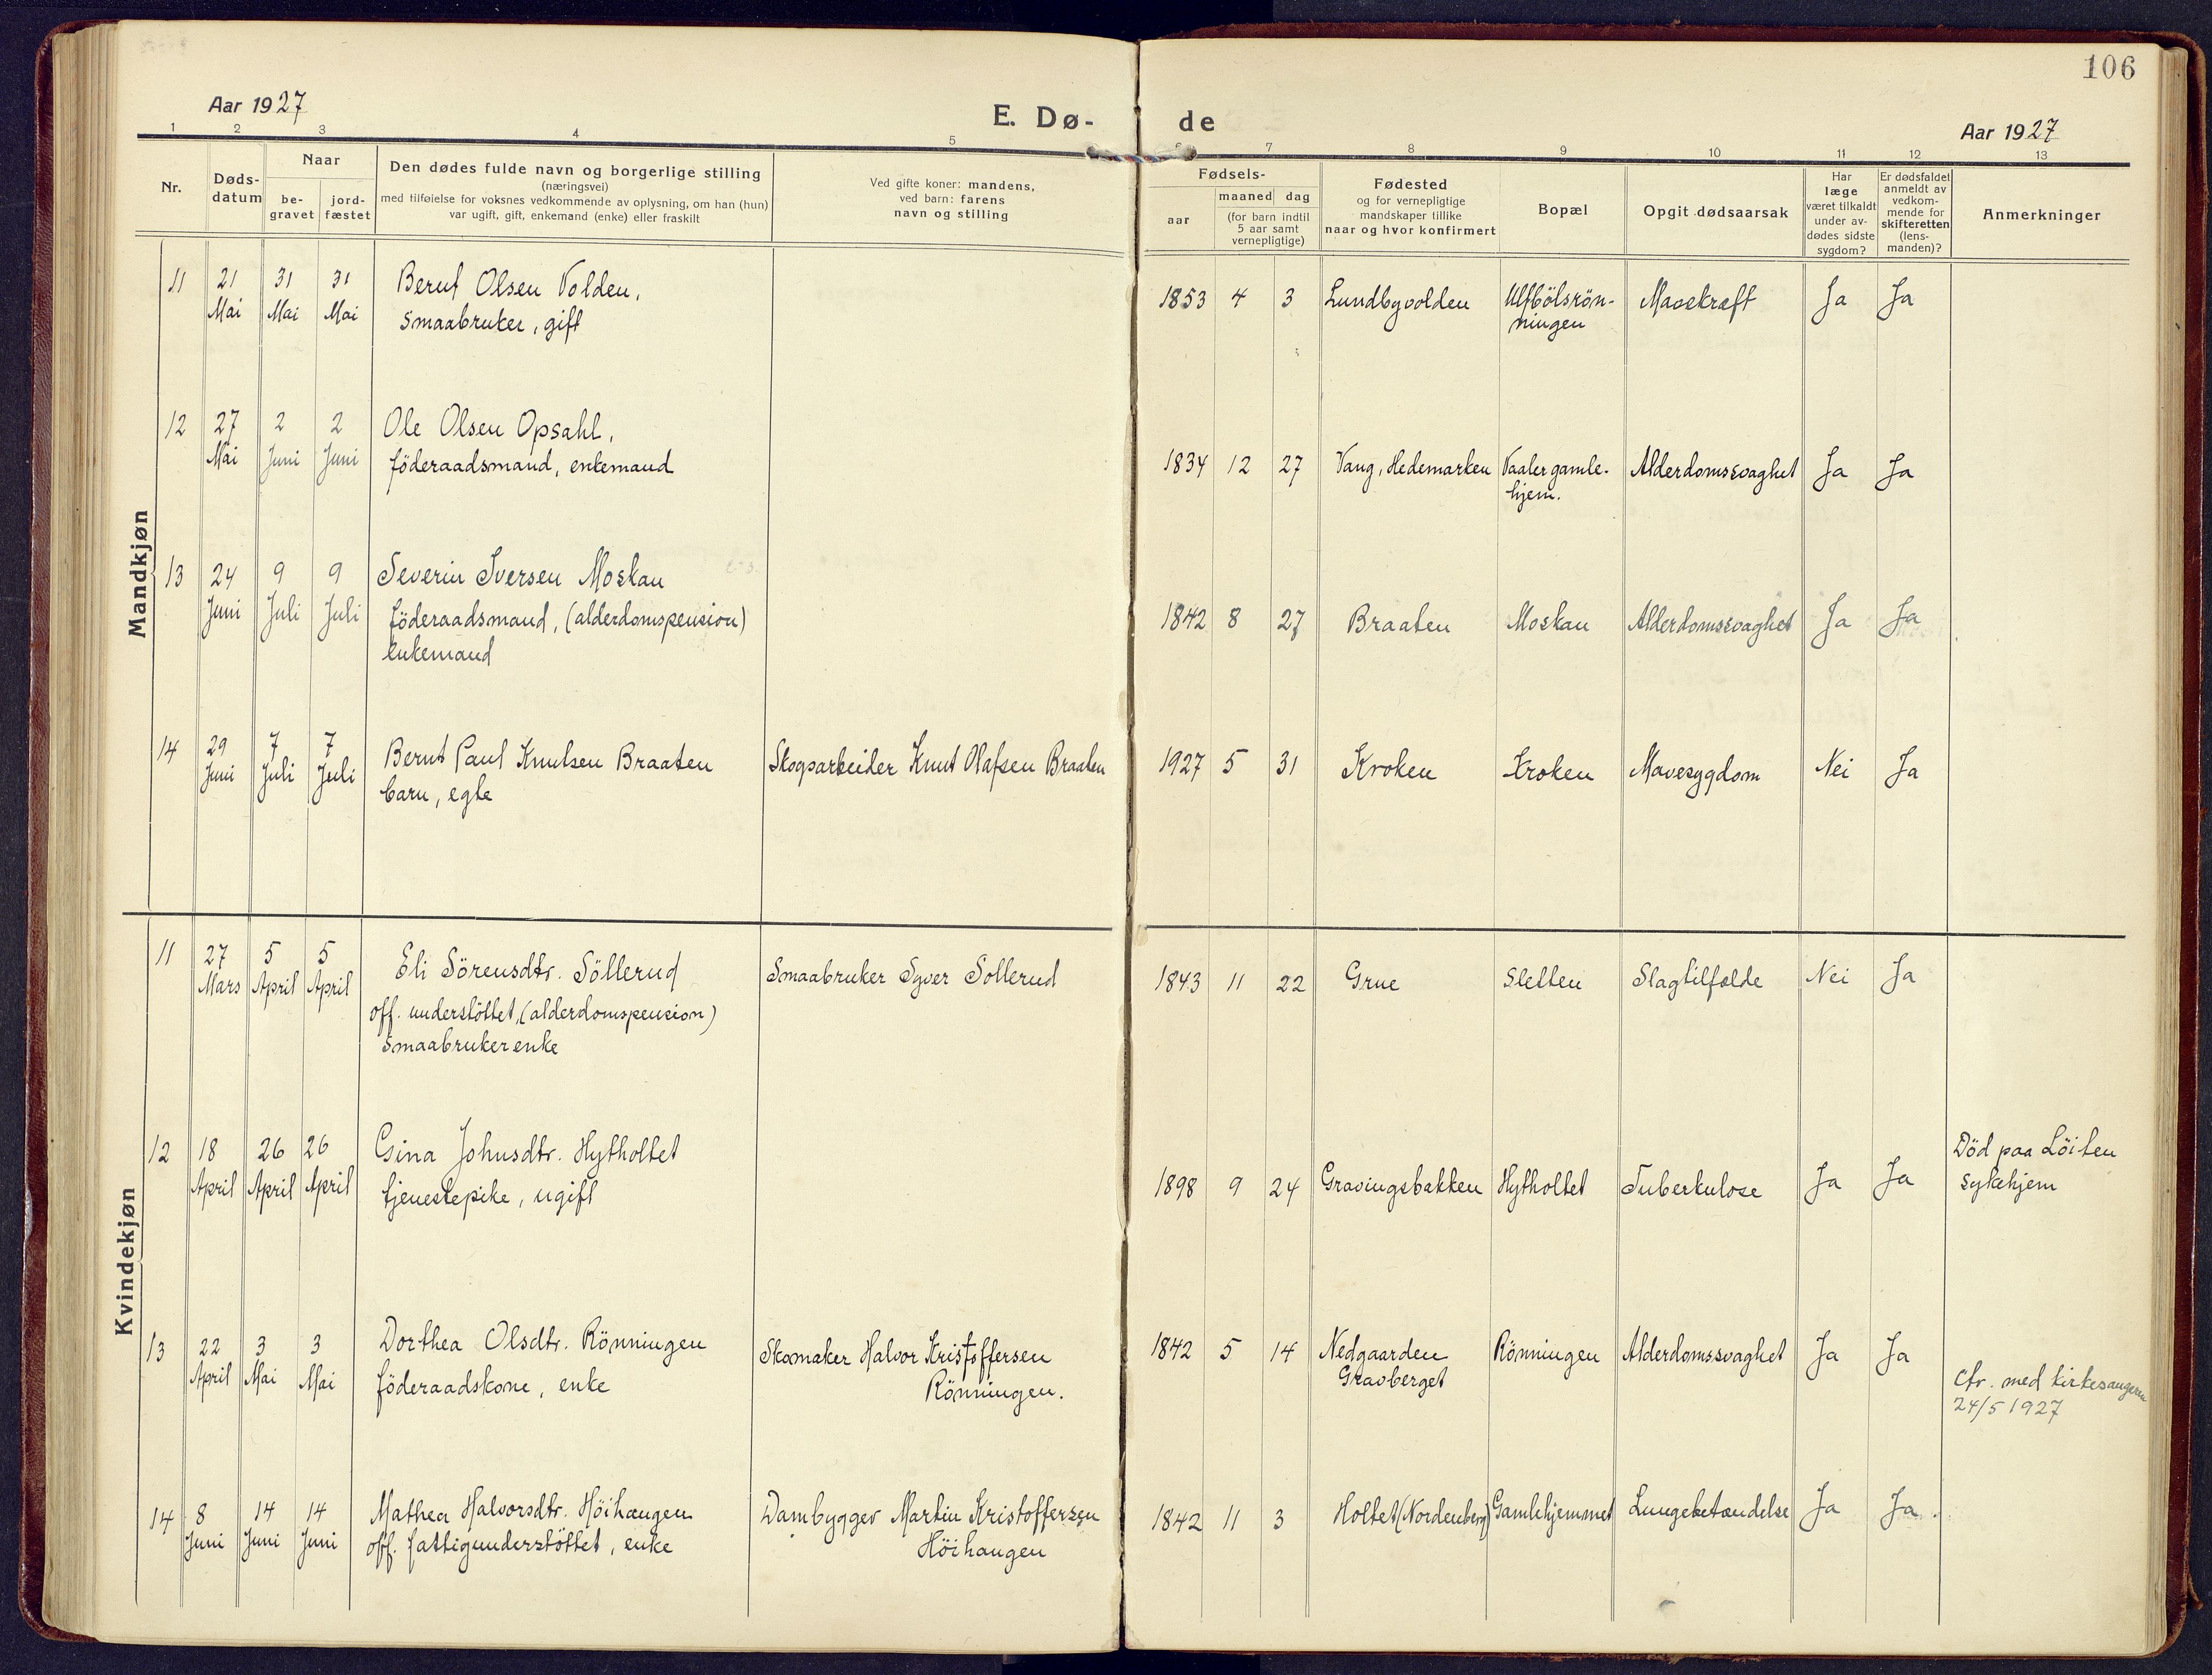 106
Aar 1927
E. Dø-
de
Aar 1927
1 2 3 4 5 6 7 8 9 10 11 12 13
Nr.
Døds-
datum
Naar
be-
gravet
jord-
fæstet
Den dødes fulde navn og borgerlige stilling
(næringsvei)
med tilføielse for voksnes vedkommende av oplysning, om han (hun)
var ugift, gift, enkemand (enke) eller fraskilt
Ved gifte koner: mandens,
ved barn: farens
navn og stilling
Fødsels-
aar
maaned dag
(for barn indtil
5 aar samt
vernepligtige)
Fødested
og for vernepligtige
mandskaper tillike
naar og hvor konfirmert
Bopæl
Opgit dødsaarsak
Har
læge
været tilkaldt
under av-
dødes sidste
sygdom?
Er dødsfaldet
anmeldt av
vedkom-
mende for
skifteretten
(lens-
manden)?
Anmerkninger
Mandkjøn
11 21 31 31 Bernt Olsen Volden,
Mai Mai Mai smaabruker, gift
1853 4 3 Lundbyvolden Ulfbölsrön- Mavekræft Ja Ja
ningen
12 27 2 2 Ole Olsen Opsahl,
Mai Juni Juni föderaadsmand, enkemand
1834 12 27 Vang, Hedemarken Vaaler gamle- Alderdomssvaghet Ja Ja
hjem.
13 24 9 9 Severin Iversen Moskau
Juni Juli Juli föderaadsmand, (alderdomspension)
enkemand
1842 8 27 Braaten Moskau Alderdomssvaghet Ja Ja
14 29 7 7 Bernt Paul Knutsen Braaten
Juni Juli Juli barn, egte
Skogsarbeider Knut Olafsen Braaten
1927 5 31 Kroken Kroken Mavesygdom Nei Ja
Kvindekjøn
11 27 5 5 Eli Sörensdtr. Söllerud
Mars April April off. understöttet, (alderdomspension)
smaabrukerenke
Smaabruker Syver Sollerud
1843 11 22 Grue Sletten Slagtilfælde Nei Ja
12 18 26 26 Gina Johnsdtr. Hytholtet
April April April tjenestepike, ugift
1898 9 24 Gravingsbakken Hytholtet Tuberkulose Ja Ja
Död paa Löiten
sykehjem
13 22 3 3 Dorthea Olsdtr. Rönningen
April Mai Mai föderaadskone, enke
Skomaker Halvor Kristoffersen
Rönningen.
1842 5 14 Nedgaarden Rönningen Alderdomssvaghet Ja Ja
Gravberget
Cfr. med kirkesangeren
24/5 1927
14 8 14 14 Mathea Halvorsdtr. Höihaugen
Juni Juni Juni off. fattigunderstöttet, enke
Dambygger Martin Kristoffersen
Höihaugen
1842 11 3 Holtet (Nordenberg) Gamlehjemmet Lungebetændelse Ja Ja